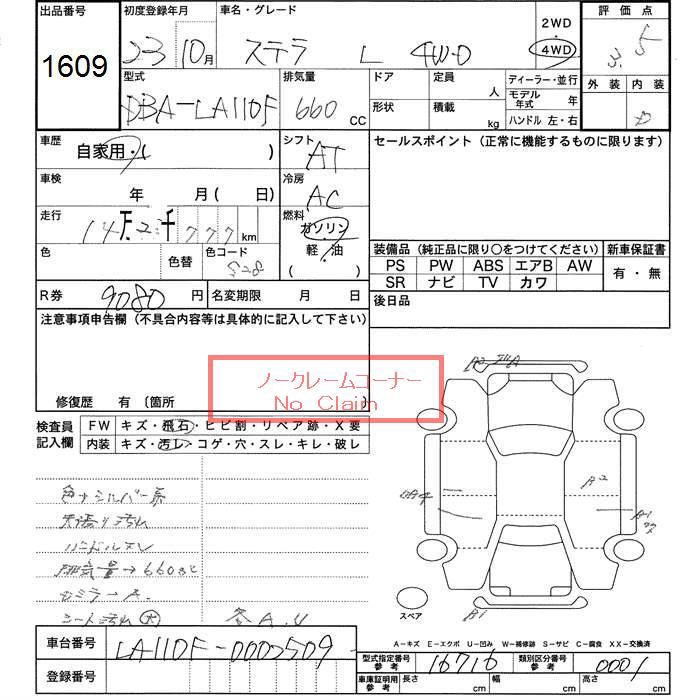 出品番号 初度登録年月 車名・グレード 2WD 評価点
1609 23 10月 ステラ L 4WD 4WD 3.5
型式 排気量 ドア 定員 人 ディーラー・並行 外装 内装
DBA-LA110F 660 CC 形状 積載 kg モデル年式 年 ハンドル 左・右 D
車歴 自家用・( ) シフト AT セールスポイント (正常に機能するものに限ります)
車検 年 月( 日) 冷房 AC
走行 14万2千777km 燃料 ガソリン 軽・油 ( )
色 色替 色コード S28
装備品 (純正品に限り〇をつけてください) 新車保証書
PS PW ABS エアB AW 有・無
SR ナビ TV カワ
R券 9080 円 名変期限 月 日 後日品
注意事項申告欄 (不具合内容等は具体的に記入して下さい)
ノークレームコーナー
No Claim
修復歴 有 〔箇所
検査員記入欄 FW キズ・飛石・ヒビ割・リペア跡・X要
内装 キズ・汚レ・コゲ・穴・スレ・キレ・破レ
色→シルバー系
天張り汚れ
ハンドルスレ
排気量→660cc
シート汚れ 大 各A.U
A2
A1
B1
スペア
A-キズ E-エクボ U-凹み W-補修跡 S-サビ C-腐食 XX-交換済
車台番号 LA110F-0002509
登録番号
型式指定番号 参考 16716 類別区分番号 参考 0001
車庫証明用 参考 長さ cm 幅 cm 高さ cm